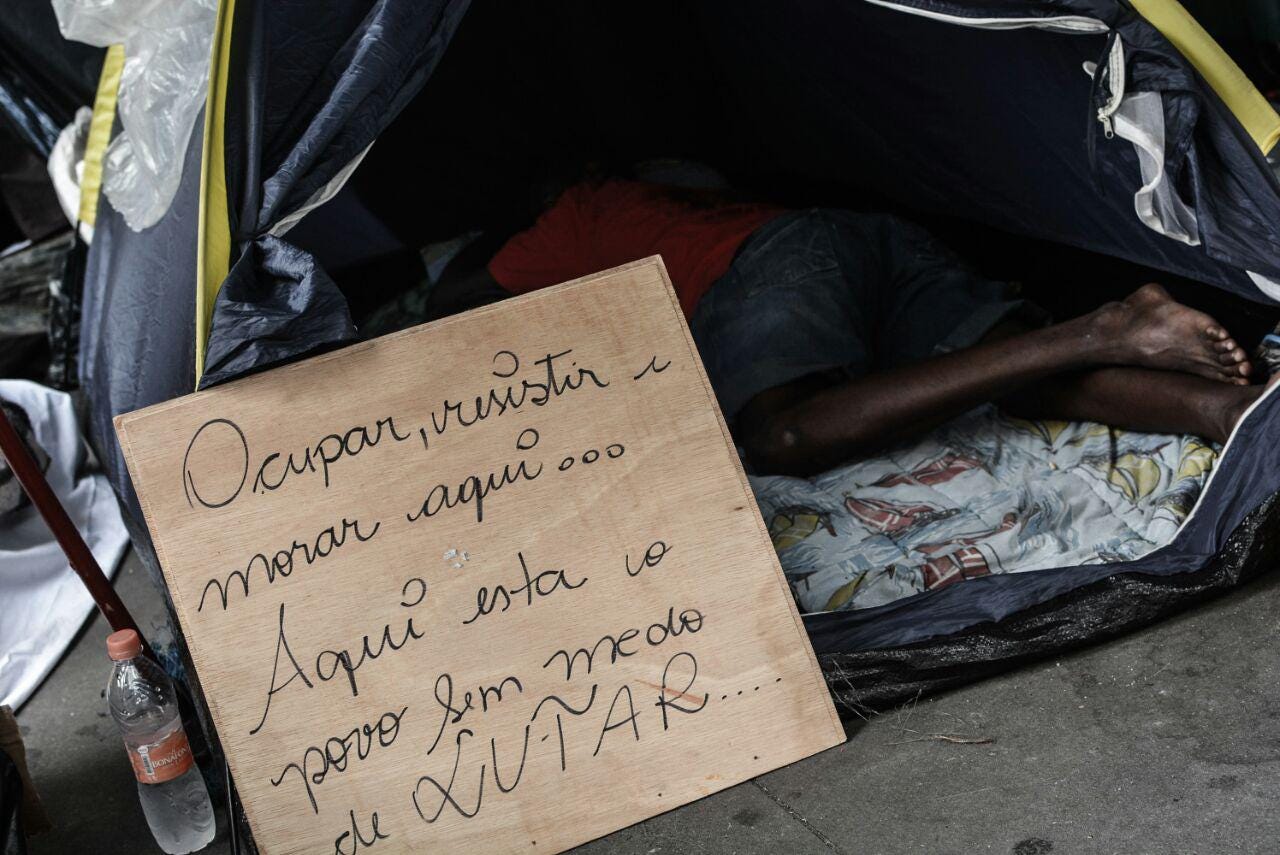 Ocupar, resistir e
morar aqui...
Aqui esta o
povo sem medo
de LUTAR.....
BONAFONT